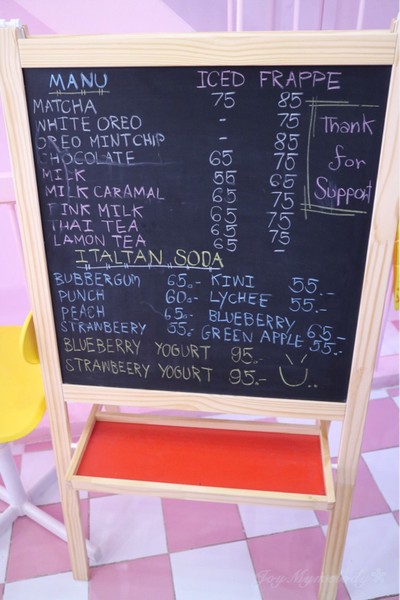 MANU ICED FRAPPE
MATCHA 75 85
WHITE OREO - 75
OREO MINTCHIP - 85
CHOCOLATE 65 75
MILK 55 65
MILK CARAMAL 65 75
PINK MILK 65 75
THAI TEA 65 75
LAMON TEA 65 -
Thank
for
Support
ITALTAN SODA
BUBBERGUM 65.- KIWI 55.-
PUNCH 60.- LYCHEE 55.-
PEACH 65.- BLUEBERRY 65.-
STRAWBEERY 55.- GREEN APPLE 55.-
BLUEBERRY YOGURT 95.-
STRAWBEERY YOGURT 95.-